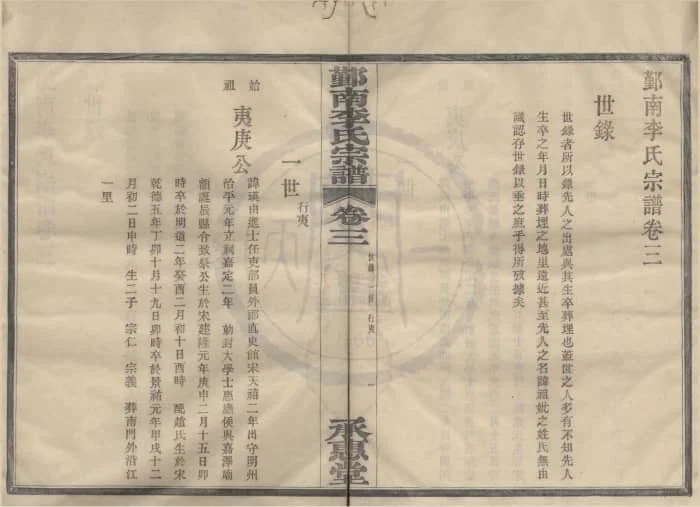 鄞南李氏宗譜卷三
世錄
世錄者所以錄先人之出處與其生卒葬埋也蓋世之人多有不知先人
生卒之年月日時葬埋之地里遠近甚至先人之名諱祖妣之姓氏無由
識認存世錄以垂之庶乎得所攷據矣
鄞南李氏宗譜
卷三
世錄 一世 行夷
一
承恩堂
一世 行夷
始祖 夷庚公
諱夷庚進士任吏部員外郎直史館宋天禧二年出守明州
治平元年立祠嘉定二年 勅封大學士惠應侯與嘉澤廟
額誕辰縣令致祭公生於宋建隆元年庚申二月十五日卯
時卒於明道二年癸酉二月初十日酉時 配趙氏生於宋
乾德五年丁卯十月十九日卯時卒於景祐元年甲戌十二
月初二日申時 生二子 宗仁 宗義 葬南門外沿江
一里